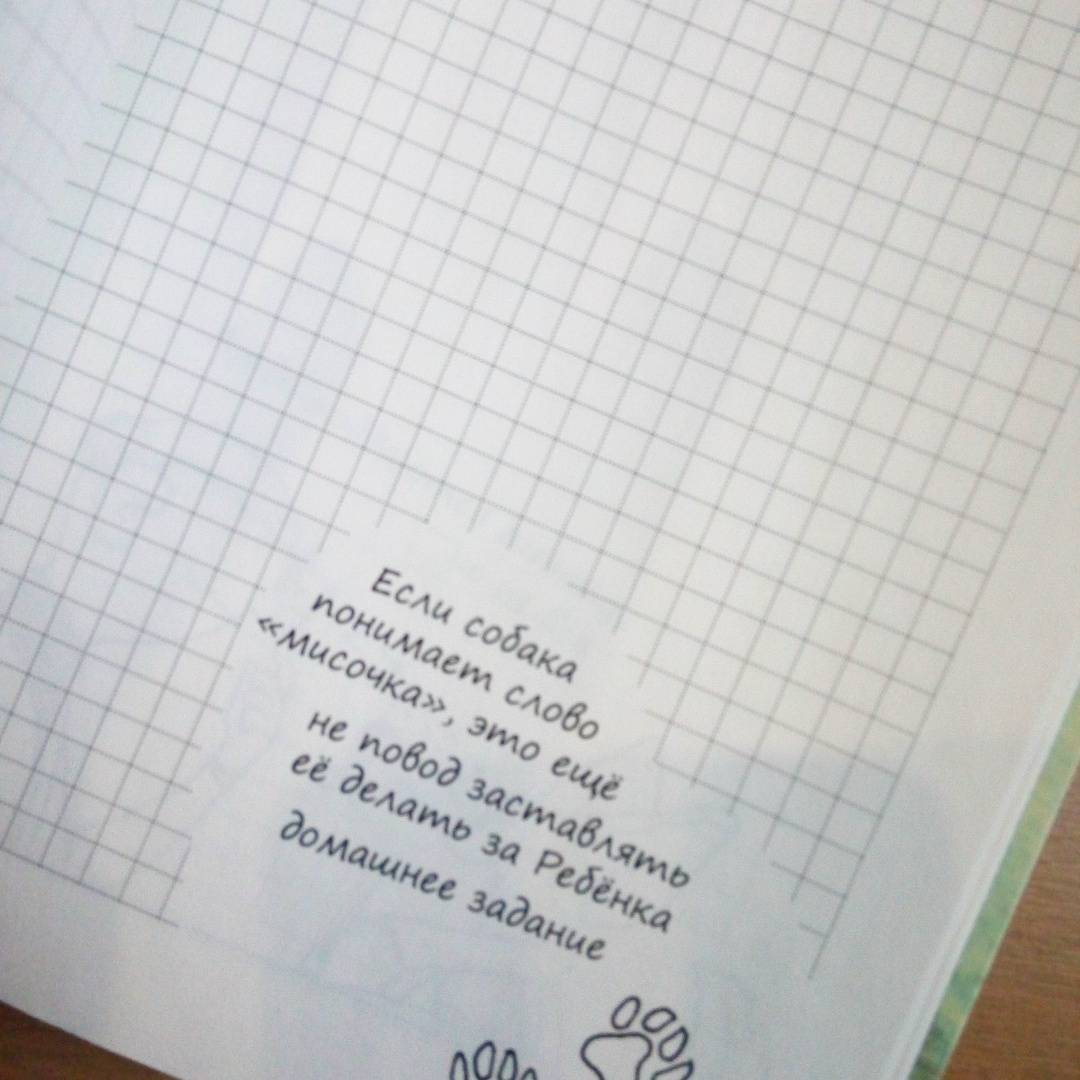 Если собака
понимает слово
«мисочка», это ещё
не повод заставлять
её делать за Ребёнка
домашнее задание